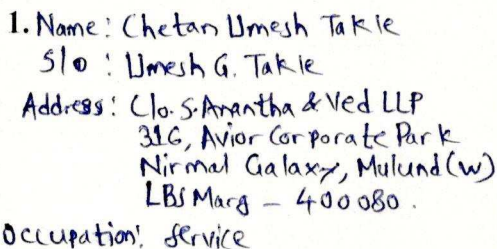 1. Name: Chetan Umesh Takle
S/o : Umesh G. Takle
Address: C/o. S. Anantha & Ved LLP
316, Avior Corporate Park
Nirmal Galaxy, Mulund (W)
LBS Marg - 400080.
Occupation: Service